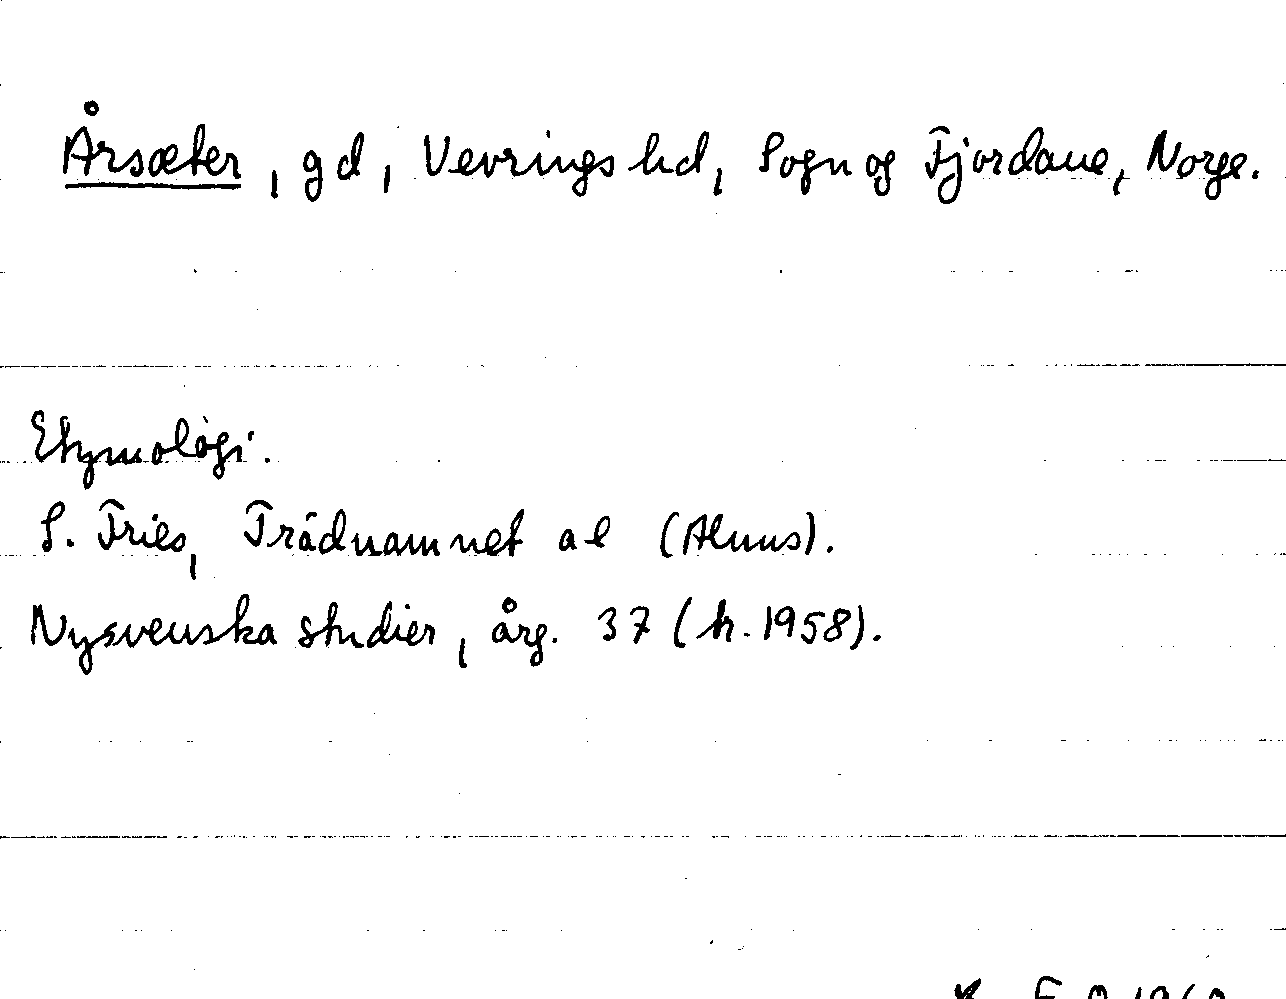 Årsæter, gd, Vevrings hd, Sogn og Fjordane, Norge.
Etymologi.
S. Fries, Trädnamnet al (Alnus).
Nysvenska studier, årg. 37 (tr. 1958).